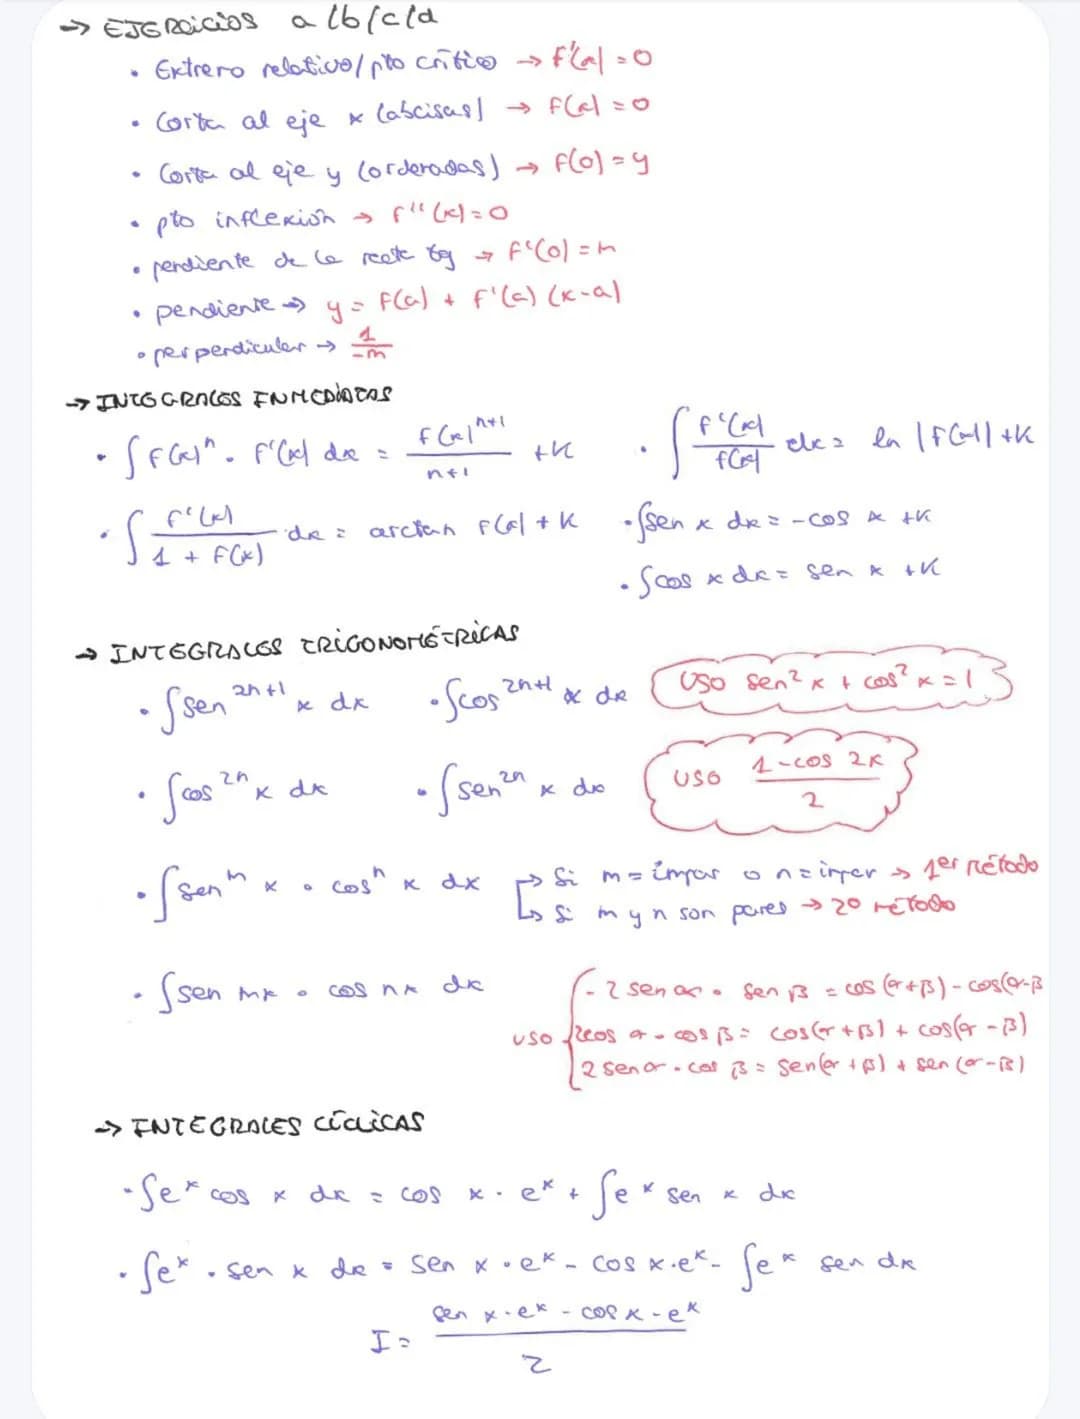 → EJERCICIOS a/b/c/d
• Extremo relativo/pto crítico → f'(x) = 0
• Corta al eje x (abcisas) → f(x) = 0
• Corta al eje y (ordenadas) → f(0) = y
• pto inflexión → f''(x) = 0
• pendiente de la recta tg → f'(0) = m
• pendiente → y = f(a) + f'(a) (x-a)
• perpendicular → 1/-m
→ INTEGRALES INMEDIATAS
• ∫ f(x)^n · f'(x) dx = f(x)^(n+1)/(n+1) + K • ∫ f'(x)/f(x) dx = ln |f(x)| + K
• ∫ f'(x)/(1 + f(x)) dx = arctan f(x) + K • ∫ sen x dx = -cos x + K
• ∫ cos x dx = sen x + K
→ INTEGRALES TRIGONOMÉTRICAS
• ∫ sen^(2n+1) x dx • ∫ cos^(2n+1) x dx USO sen² x + cos² x = 1
• ∫ cos^(2n) x dx • ∫ sen^(2n) x dx USO (1 - cos 2x)/2
• ∫ sen^m x · cos^n x dx → Si m = impar o n = impar → 1er Método
↳ Si m y n son pares → 2º MÉTODO
• ∫ sen mx · cos nx dx - 2 sen α · sen β = cos (α+β) - cos(α-β
USO 2cos α · cos β = cos(α+β) + cos(α-β)
2 sen α · cos β = sen(α+β) + sen(α-β)
→ INTEGRALES CÍCLICAS
• ∫ e^x cos x dx = cos x · e^x + ∫ e^x sen x dx
• ∫ e^x · sen x dx = sen x · e^x - cos x · e^x - ∫ e^x sen dx
I = (sen x · e^x - cos x - e^x)/2